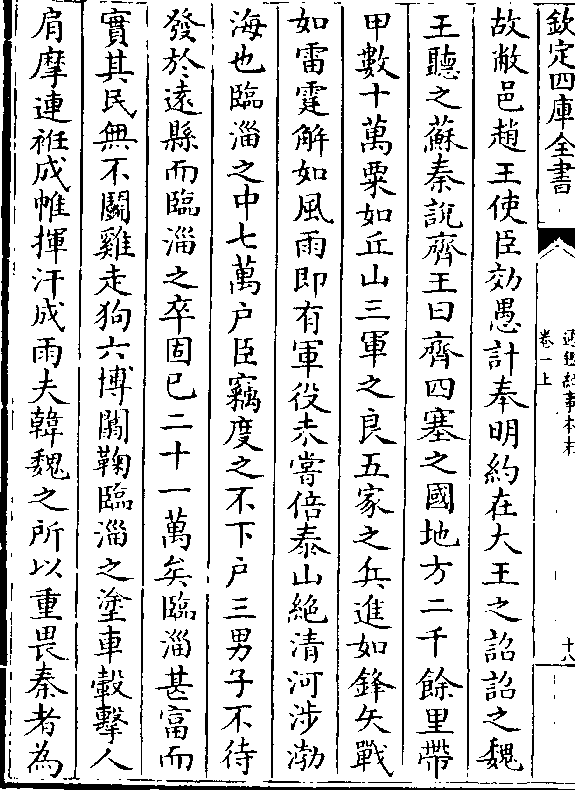 欽定四庫全書
通鑑紀事本末
卷一上
十八
故敝邑趙王使臣効愚計奉明約在大王之詔詔之魏
王聽之蘇秦說齊王曰齊四塞之國地方二千餘里帶
甲數十萬粟如丘山三軍之良五家之兵進如鋒矢戰
如雷霆解如風雨即有軍役未嘗倍泰山絶清河涉渤
海也臨淄之中七萬戶臣竊度之不下戶三男子不待
發於遠縣而臨淄之卒固已二十一萬矣臨淄甚富而
實其民無不鬭雞走狗六博闒鞠臨淄之塗車轂擊人
肩摩連袵成帷揮汗成雨夫韓魏之所以重畏秦者為